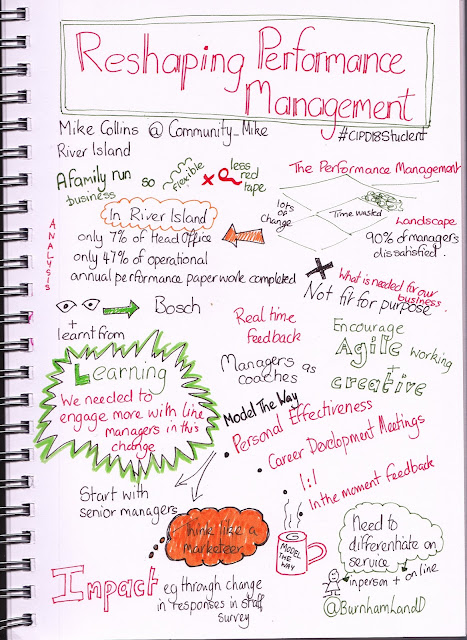 Reshaping Performance
Management
Mike Collins @ Community_Mike
#CIPD18Student
River Island
A family run
business
so
flexible
less
red
tape
The Performance Management
lots
of
change
Time wasted
Landscape
90% of managers
dissatisfied.
ANALYSIS
In River Island
only 7% of Head Office
only 47% of operational
annual performance paperwork completed
What is needed for our
business
Not fit for purpose
Bosch
+
learnt from
Real time
feedback
Encourage
Agile working
+
creative
Managers as
coaches
Learning
We needed to
engage more with line
managers in this
change
Model The Way
• Personal Effectiveness
• Career Development Meetings
• 1:1
• In the moment feedback
Start with
senior managers
Think like a
marketeer
MODEL
THE
WAY
Need to
differentiate on
service
inperson + online
Impact
eg through change
in responses in staff
survey
@BurnhamLandD